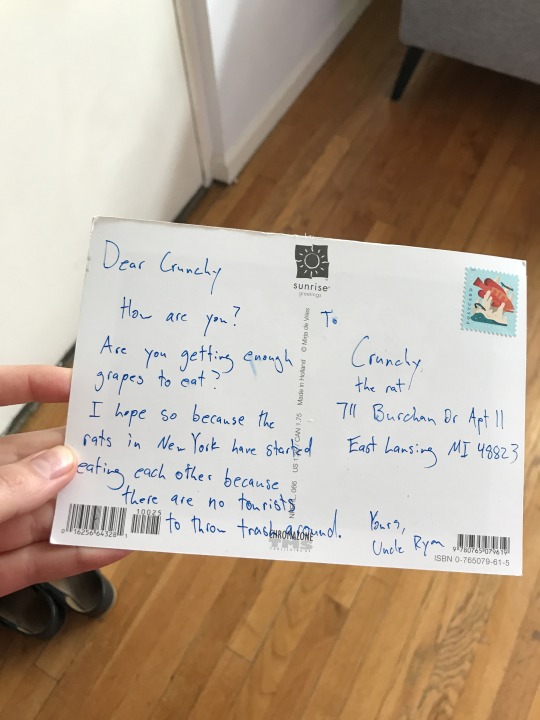 Dear Crunchy
How are you?
Are you getting enough
grapes to eat?
I hope so because the
rats in New York have started
eating each other because
there are no tourists
to throw trash around.
sunrise
greetings
Made in Holland © Mirja de Vries
To
Crunchy,
the rat
711 Burcham Dr Apt 11
East Lansing MI 48823
Yours,
Uncle Ryan
10025
0 16256 64328 1
9 780765 079619
ISBN 0-765079-61-5